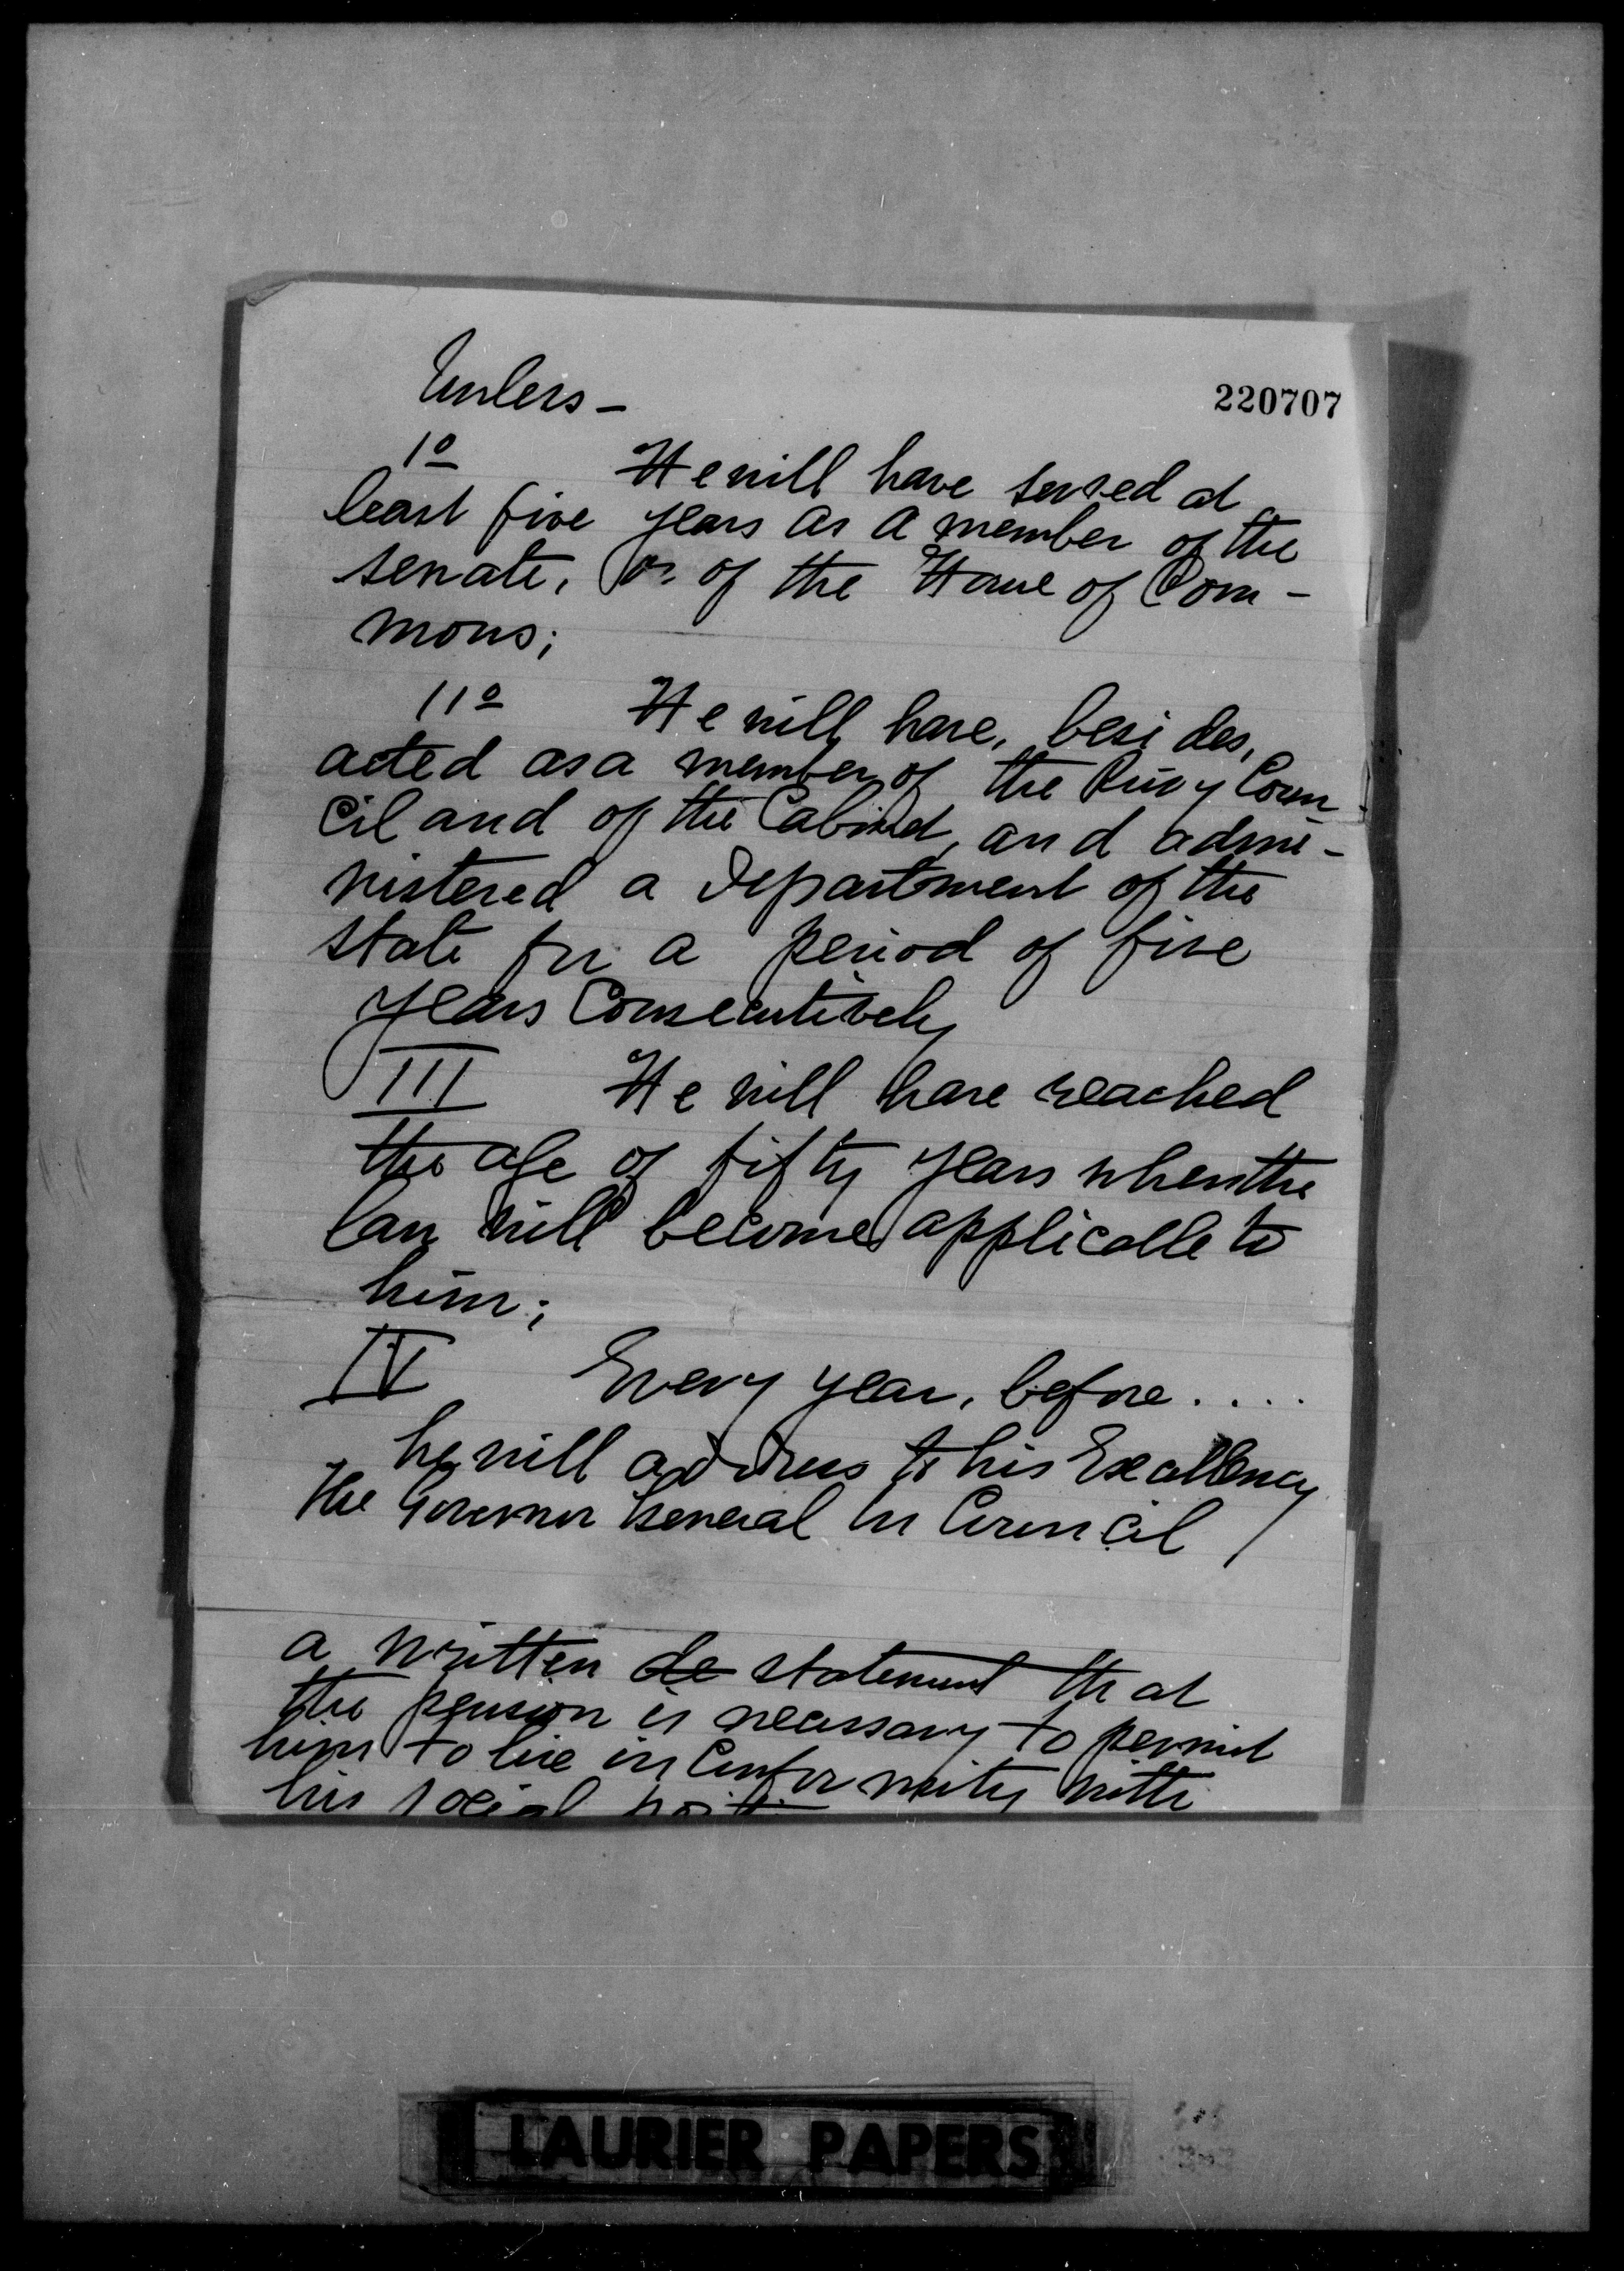 Unless –
220707
1º He will have served at
least five years as a member of the
senate, or of the House of Com-
mons;
11º He will have, besides,
acted as a member of the Privy Coun-
cil and of the Cabinet, and admi-
nistered a Department of the
state for a period of five
years consecutively
III He will have reached
the age of fifty years when the
law will become applicable to
him;
IV Every year, before....
he will address to his Excellency
the Governor General in Council
a written de statement that
the pension is necessary to permit
him to live in conformity with
his social
LAURIER PAPERS